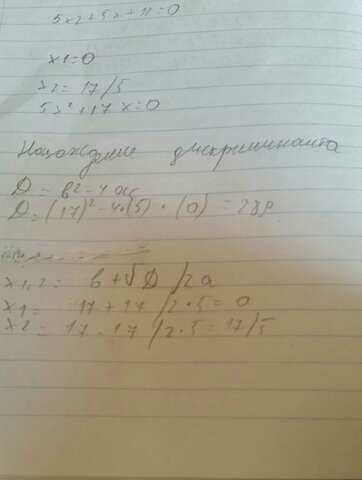 5x2+5x+11=0
x1=0
x2=17/5
5x²+17x=0
Нахождение дискриминанта
D=b²-4ac
D=(17)²-4*(5)*(0)=289
x1,2= b+√D/2a
x1= 17+17/2·5=0
x2= 17-17/2·5=17/5